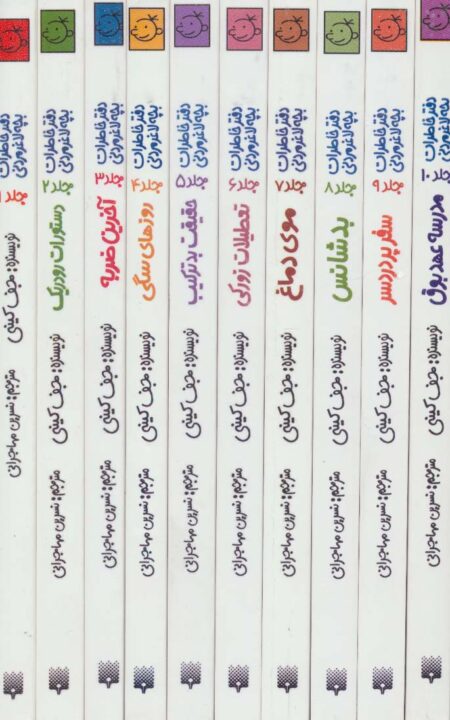 دفتر خاطرات
بچه لاغرمردنی
جلد ۱
نویسنده: جف کینی
مترجم: نسرین مهاجرانی
دفتر خاطرات
بچه لاغرمردنی
جلد ۲
دستورات رودریک
نویسنده: جف کینی
مترجم: نسرین مهاجرانی
دفتر خاطرات
بچه لاغرمردنی
جلد ۳
آخرین ضربه
نویسنده: جف کینی
مترجم: نسرین مهاجرانی
دفتر خاطرات
بچه لاغرمردنی
جلد ۴
روزهای سگی
نویسنده: جف کینی
مترجم: نسرین مهاجرانی
دفتر خاطرات
بچه لاغرمردنی
جلد ۵
حقیقت بدترکیب
نویسنده: جف کینی
مترجم: نسرین مهاجرانی
دفتر خاطرات
بچه لاغرمردنی
جلد ۶
تعطیلات زورکی
نویسنده: جف کینی
مترجم: نسرین مهاجرانی
دفتر خاطرات
بچه لاغرمردنی
جلد ۷
موی دماغ
نویسنده: جف کینی
مترجم: نسرین مهاجرانی
دفتر خاطرات
بچه لاغرمردنی
جلد ۸
بدشانس
نویسنده: جف کینی
مترجم: نسرین مهاجرانی
دفتر خاطرات
بچه لاغرمردنی
جلد ۹
سفر پردردسر
نویسنده: جف کینی
مترجم: نسرین مهاجرانی
دفتر خاطرات
بچه لاغرمردنی
جلد ۱۰
مدرسه عهد بوق
نویسنده: جف کینی
مترجم: نسرین مهاجرانی